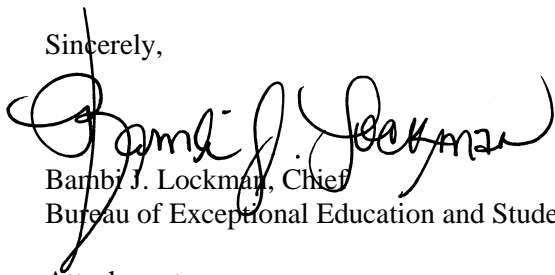 Sincerely,
Bambi J. Lockman
Bambi J. Lockman, Chief
Bureau of Exceptional Education and Stude